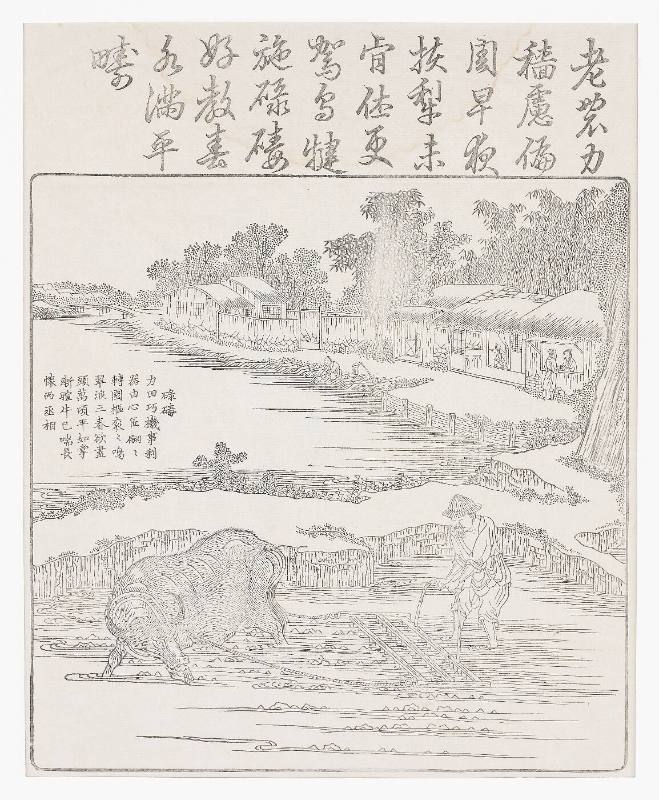 老農力
穡慮偏
周早夜
扶犁未
肯休更
駕烏犍
施碌碡
好教春
水滿平
疇
碌碡
力田巧機事利
器由心匠翩〻
轉圜樞袞〻鳴
翠浪三春欲盡
頭萬頃平如掌
漸暄牛已喘長
懷丙丞相